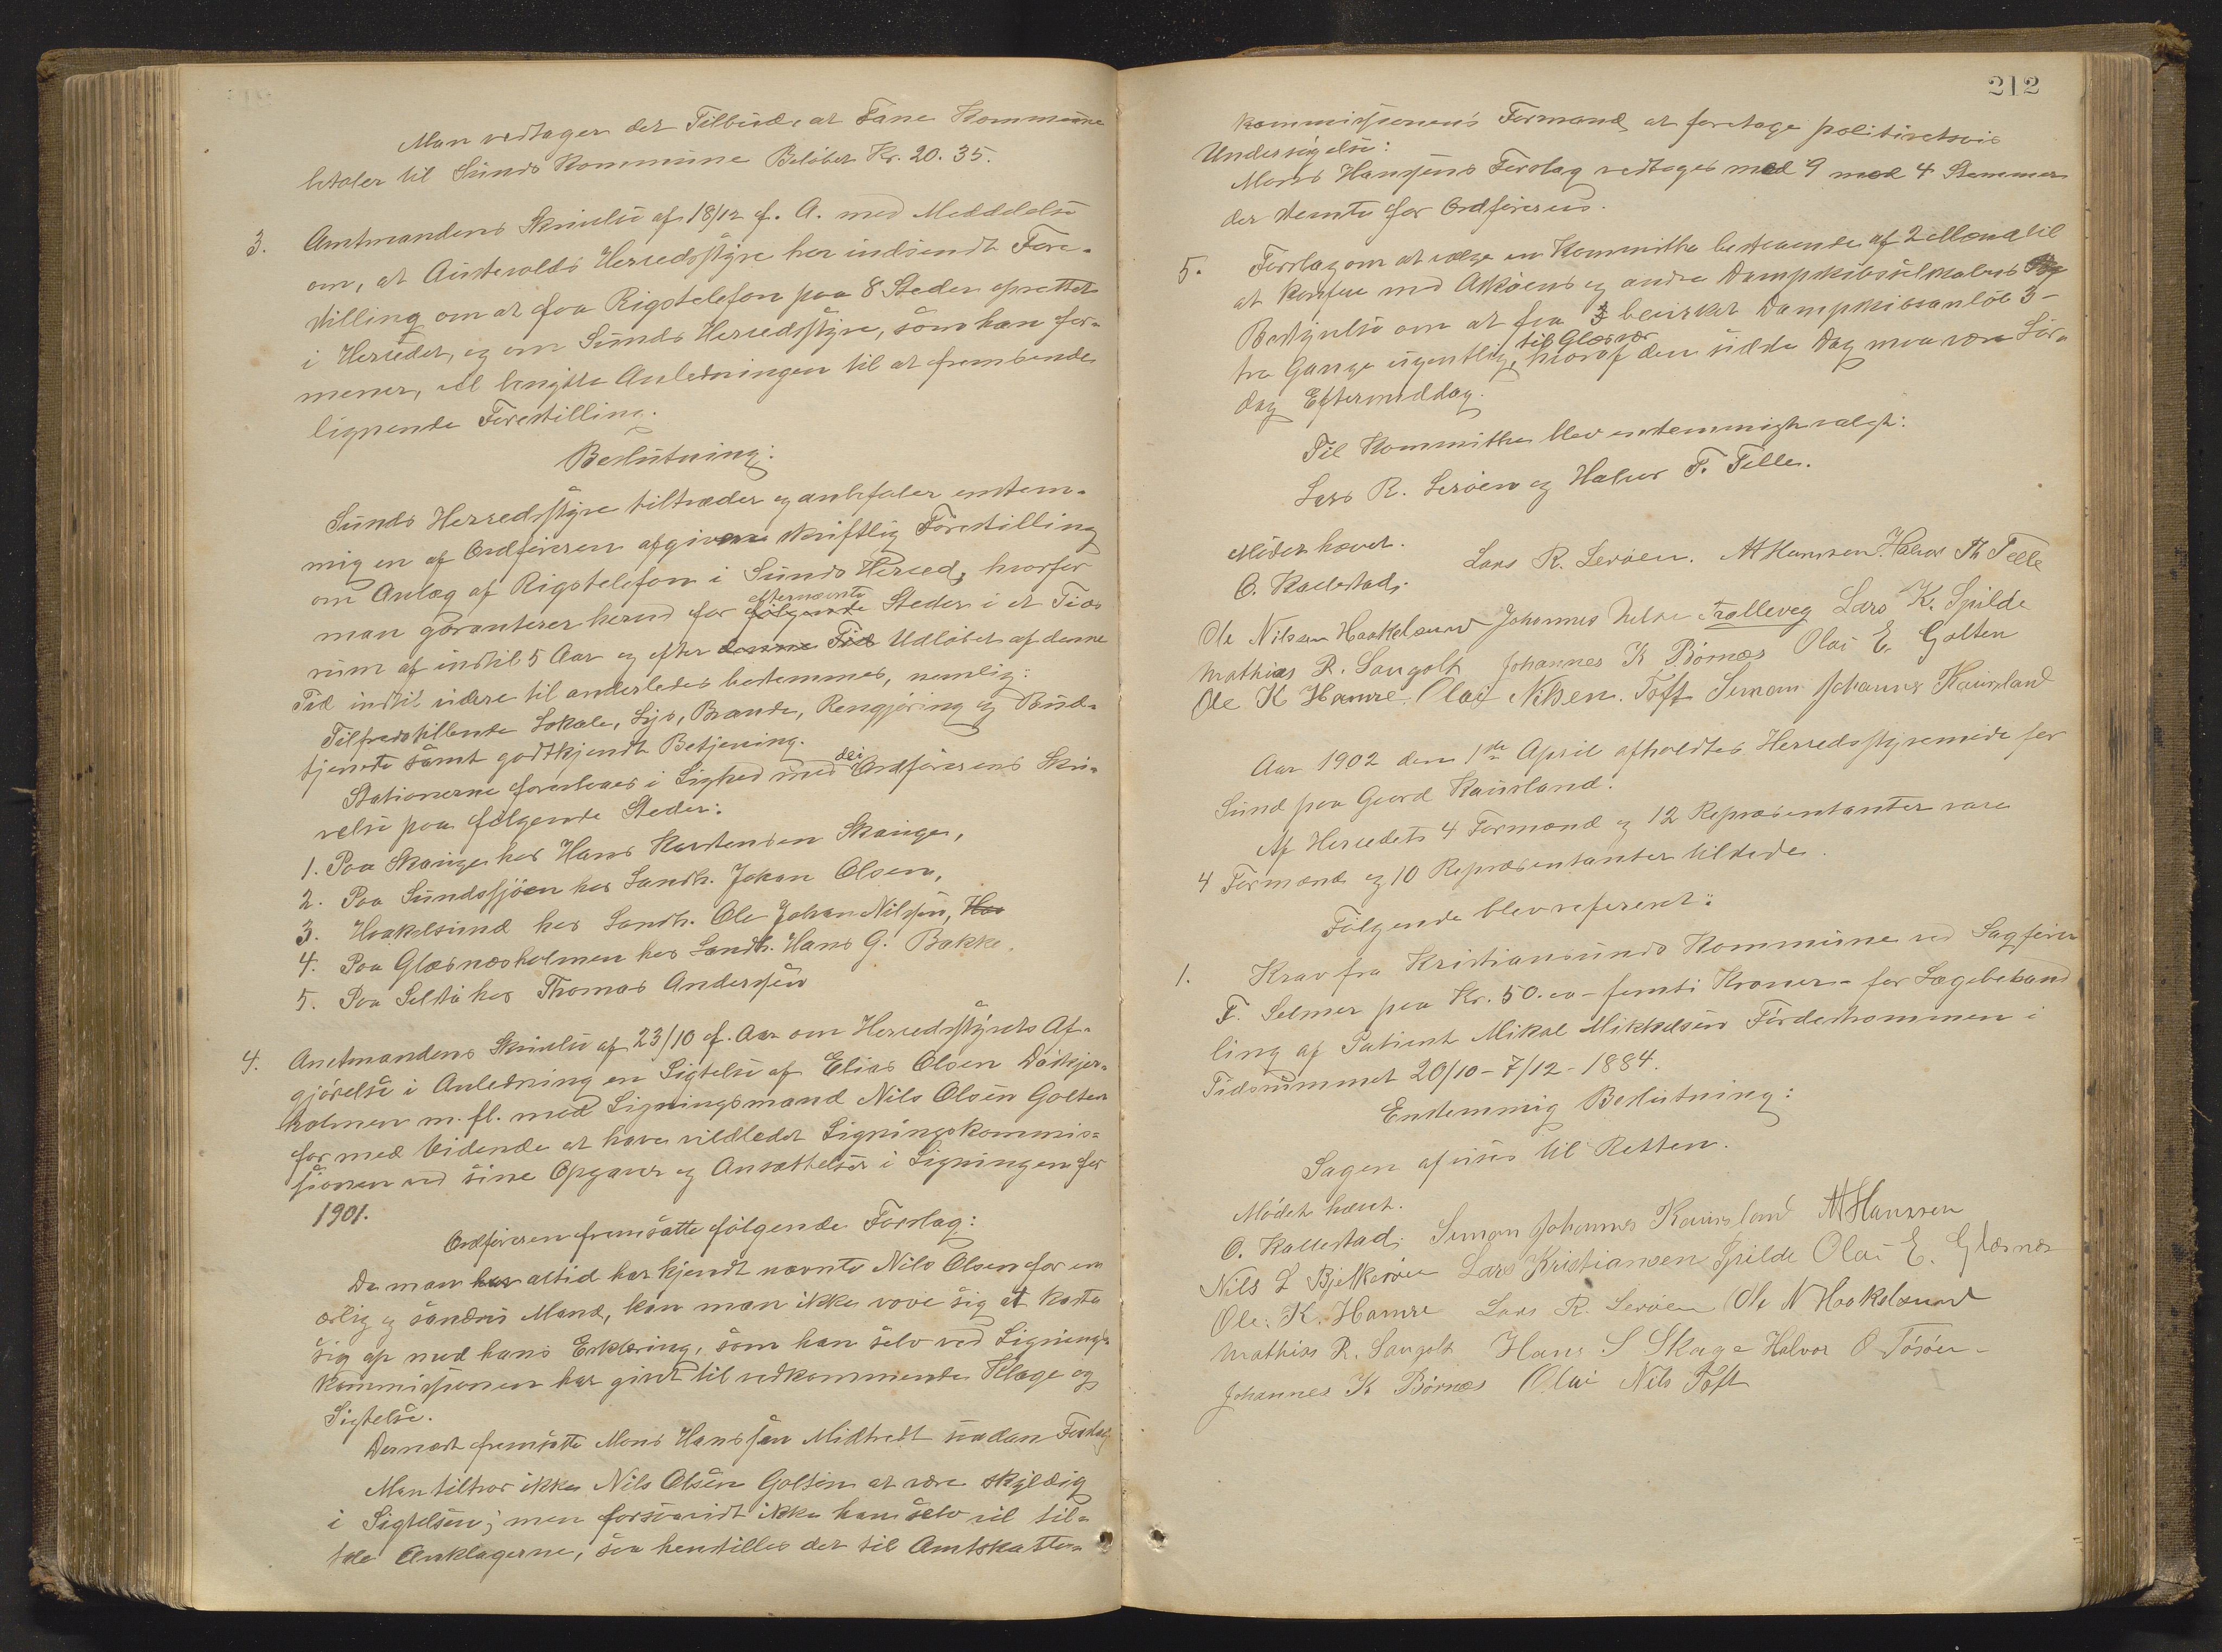 Man vedtager det Tilbud, at Fane Kommune
betaler til Sunds Kommune Beløbet Kr. 20.35.
3. Amtmandens Skrivelse af 18/12 f. A. med Meddelelse
om, at Austevolds Herredsstyre har indsendt Fore-
stilling om at faa Rigstelefon paa 8 Steder oprettet
i Herredet, og om Sunds Herredsstyre, som han for-
mener, vil benytte Anledningen til at fremsende
lignende Forestilling.
Beslutning:
Sunds Herredsstyre tiltræder og anbefaler enstem-
mig en af Ordføreren afgiven skriftlig Forestilling
om Anlæg af Rigstelefon i Sunds Herred, hvorfor
man garanterer herved for følgende efternævnte Steder i et Tids
rum af indtil 5 Aar og efter denne Tid Udløbet af denne
Tid indtil videre til anderledes bestemmes, nemlig:
Tilfredsstillende Lokale, Lys, Brænde, Rengjøring og Bud-
tjeneste samt godtkjendt Betjening.
Stationerne foreslaaes i Lighed med dei Ordførerens Skri-
velse paa følgende Steder:
1. Paa Skauge hos Hans Karstensen Skauge,
2. Paa Sundssjøen hos Landh. Johan Olsen,
3. Haakelsund hos Landh. Ole Johan Nilssen, Haa
4. Paa Glæsnesholmen hos Landh. Hans G. Bakke.
5. Paa Selstø hos Thomas Anderssen
4. Amtmandens Skrivelse af 23/10 f. Aar om Herredsstyrets Af-
gjørelse i Anledning en Sigtelse af Elias Olsen Dødkjer-
holmen m. fl. med Ligningsmand Nils Olsen Golten
for med Vidende at have vildledet Ligningskommis-
sionen ved sine Opgaver og Ansættelser i Ligningen for
1901.
Ordføreren fremsatte følgende Forslag:
Da man har altid har kjendt nævnte Nils Olsen for en
ærlig og sandru Mand, kan man ikke vove sig at kaste
sig op mod hans Erklæring, som han selv ved Lignings
kommissionen har givet til vedkommende Klage og
Sigtelse.
Dernæst fremsatte Mons Hanssen Midtvedt saadan Forslag
Man tiltror ikke Nils Olsen Golten at være skyldig
i Sigtelsen; men forsaavidt ikke han selv vil til-
tale Anklagerne, saa henstilles det til Amtskatte-
212
kommissionens Formand at foretage politiretsvis
Undersøgelse:
Mons Hanssens Forslag vedtages med 9 mod 4 Stemmer
der stemte for Ordførerens.
5. Forslag om at vælge en Kommitte bestaaende af 2 Mænd til
at konferere med Askøens og andre Dampskibsselskabers
Bestyrelse om at faa 3 bevirket Dampskibsanløb 3-
tre Gange ugentlig til Glesvær, hvoraf den sidste Dag maa være Lør-
dag Eftermiddag.
Til Kommitte blev enstemmigt valgt:
Lars R. Lerøen og Halvor T. Telle.
Mødet hævet.
O. Kallestad. Lars R. Lerøen. M Hanssen. Halvor Th Telle
Ole Nilssen Haakelsund Johannes Trelleveg Lars K. Spilde
Mathias R. Sangolt Johannes K Børnæs Olai E. Golten
Ole K Hamre. Olai Nilsen. Toft Simon Johannes Kausland
Aar 1902 den 1ste April afholdtes Herredsstyremøde for
Sund paa Gaard Kausland.
Af Herredets 4 Formænd og 12 Repræsentanter vare
4 Formænd og 10 Repræsentanter tilstede.
Følgende blev referert:
1. Krav fra Kristiansunds Kommune ved Sagfører
F. Selmer paa Kr. 50.00 - femti Kroner - for Lægebehand
ling af Patient Mikal Mikkelsen Førdestrommen i
Tidsrummet 20/10 - 7/12 - 1884.
Enstemmig Beslutning:
Sagen afvises til Retten.
Mødet hævet.
O. Kallestad. Simon Johannes Kausland M Hanssen
Nils L Bjelkerøen Lars Kristiansen Spilde Olai E. Glesnes
Ole. K. Hamre Lars R. Lerøen Ole N Haakelsund
Mathias R. Sangolt Hans S Skage Halvor O Tøsøen
Johannes K Børnes Olai Nils Toft